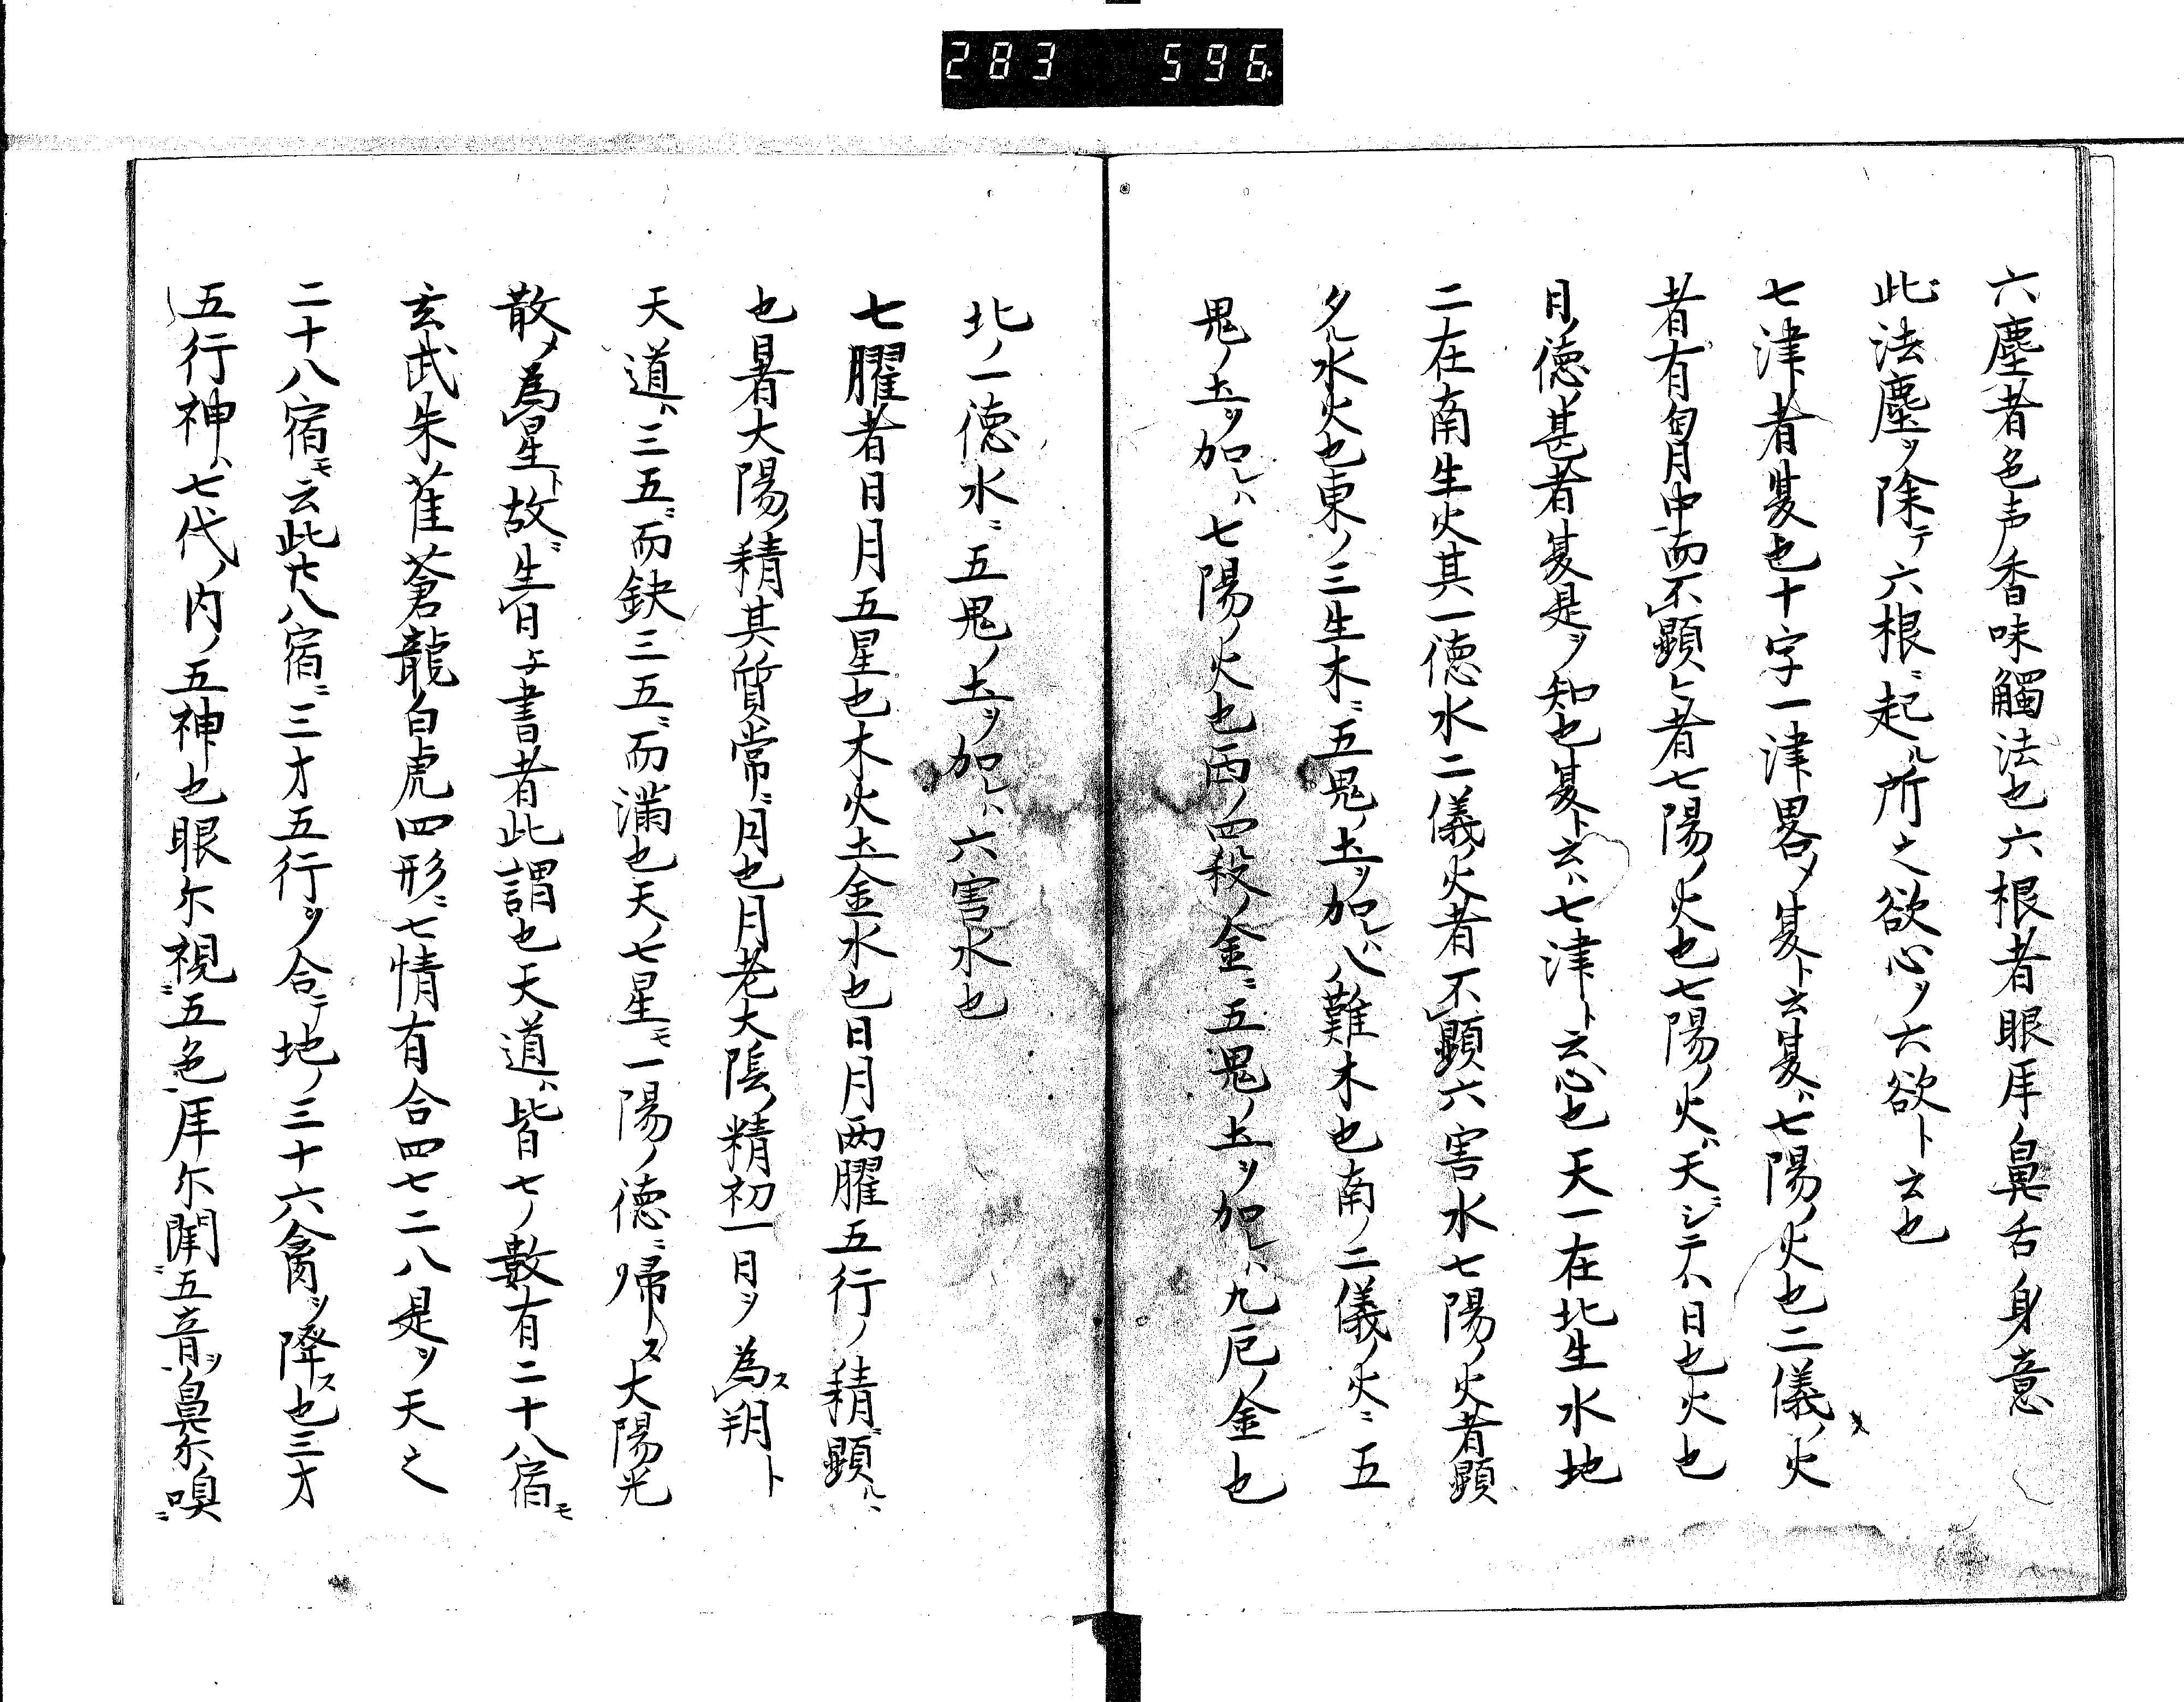 283 596
六塵者色声香味觸法也六根者眼耳鼻舌身意
此法塵ヲ除テ六根ニ起ル所之欲心ヲ六欲ト云也
七津者髪也十字一津畧メ髪ト云髪ハ七陽ノ火也二儀ノ火
者有匈月中而不顕ヒ者七陽ノ火也七陽ノ火天ニシテハ日也火也
日ノ德甚者髪是ヲ知也髪ト云ハ七津ト云心也天一在北生水地
二在南生火其一德水二儀ノ火者不顕六害水七陽ノ火者顕
タル水火也東ノ三生木ニ五鬼ノ土ヲ加レハ八難木也南ノ二儀ノ火ニ五
鬼ノ土ヲ加レハ七陽ノ火也西ノ四殺ノ金ニ五鬼ノ土ヲ加レハ九厄ノ金也
北ノ一德水ニ五鬼ノ土ヲ加レハ六害水也
七曜者日月五星也木火土金水也日月两曜五行ノ精顕ルニ
也暑大陽ノ精其質常ニ月也月老大陰ノ精初一日ヲ為ス朔ト
天道ハ三五ニ而缺三五ニ而満也天ノ七星モ一陽ノ德ニ帰ス大陽光
散メ為星ト故ニ生日ヨ書者此謂也天道ハ皆七ノ數有二十八宿モ
玄武朱雀蒼龍白虎四形ニ七情有合四七二八是ヲ天之
二十八宿モ云此廿八宿ニ三才五行ヲ合テ地ノ三十六禽ヲ降ス也三才
五行神ハ七代ノ内ノ五神也眼尓視ニ五色耳尓聞ニ五音ヲ鼻尓嗅ニ